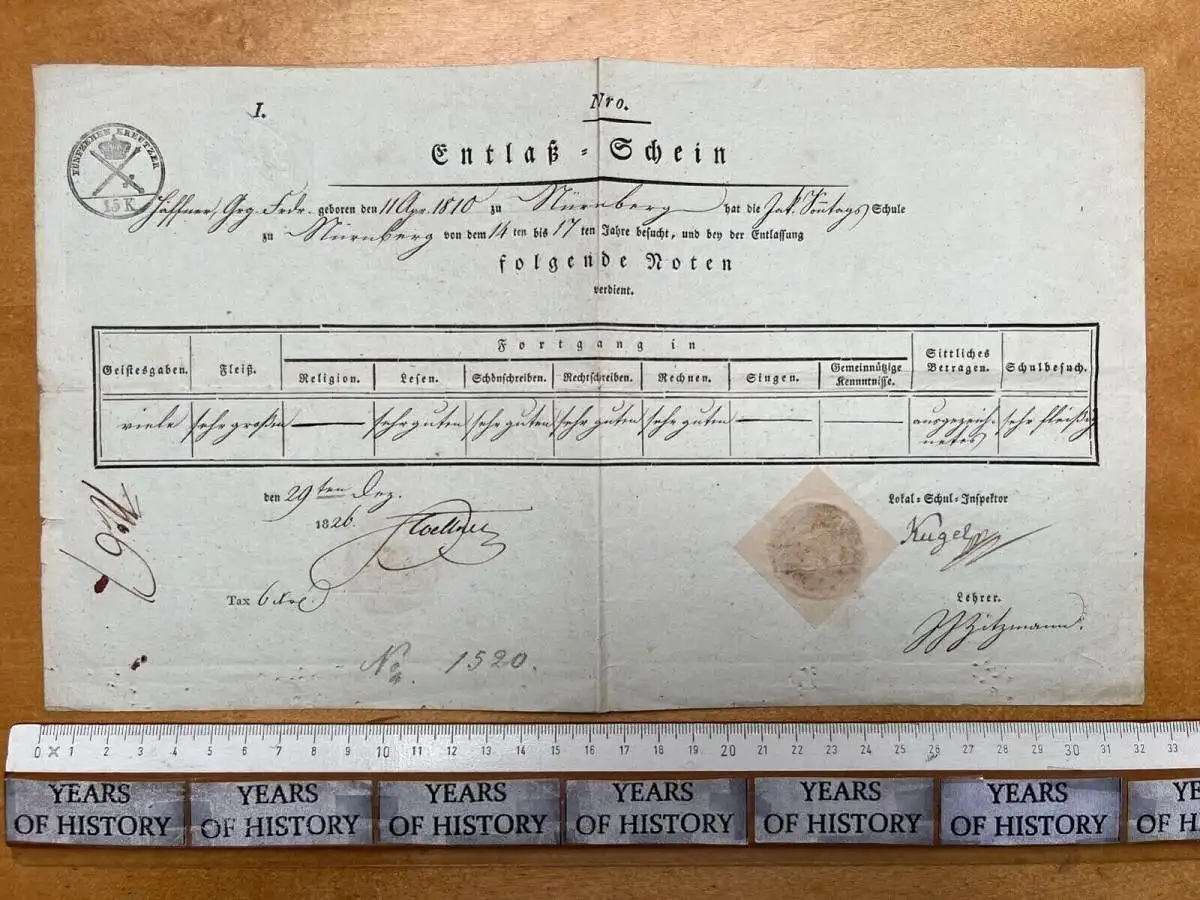 I.
Nro.
FÜNFZEHEN KREUTZER
15 K
Entlaß-Schein
Häffner, Grg. Frdr. geboren den 11 Apr. 1810 zu Nürnberg hat die Jak. Sonntags Schule
zu Nürnberg von dem 14 ten bis 17 ten Jahre besucht, und bey der Entlassung
folgende Noten
verdient.
Fortgang in
Geistesgaben. Fleiß. Religion. Lesen. Schönschreiben. Rechtschreiben. Rechnen. Singen. Gemeinnützige Kenntnisse. Sittliches Betragen. Schulbesuch.
viele sehr großen — sehr guten sehr guten sehr guten sehr guten — — ausgezeichnetes sehr fleißig
den 29ten Dez.
1826.
Lokal-Schul-Inspektor
Kugel
Tax 6
Lehrer.
Zitzmann.
No. 1520.
0 1 2 3 4 5 6 7 8 9 10 11 12 13 14 15 16 17 18 19 20 21 22 23 24 25 26 27 28 29 30 31 32 33
YEARS YEARS YEARS YEARS YEARS YEARS YE
OF HISTORY OF HISTORY OF HISTORY OF HISTORY OF HISTORY OF HISTORY OF H